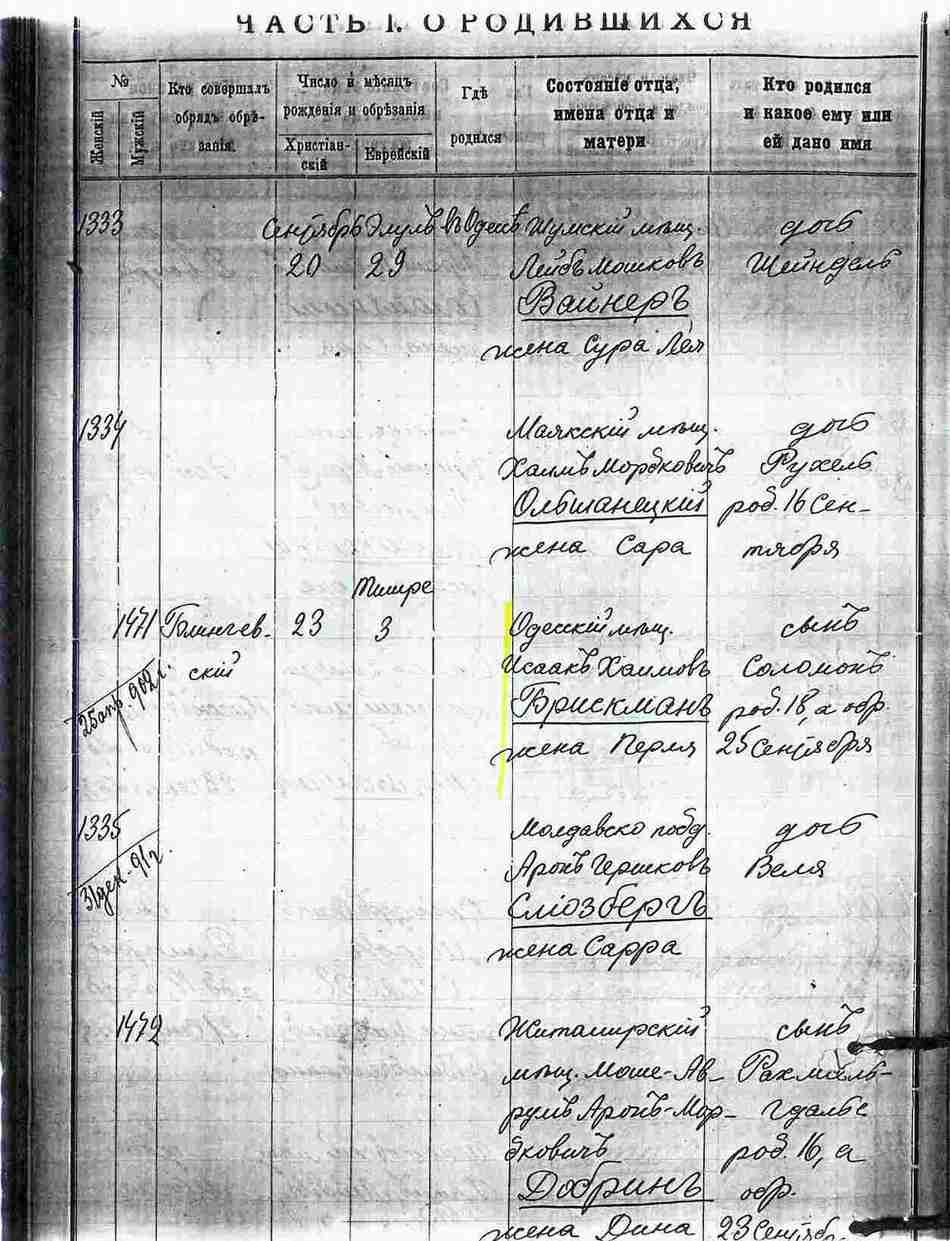 ЧАСТЬ I. О РОДИВШИХСЯ
№
Женскій
Мужскій
Кто совершалъ
обрядъ обрѣ-
занія.
Число и мѣсяцъ
рожденія и обрѣзанія
Христіан-
скій
Еврейскій
Гдѣ
родился
Состояніе отца,
имена отца и
матери
Кто родился
и какое ему или
ей дано имя
1333
Сентябрь Элулъ въ Одессѣ Шумскій мѣщ. дочь
20 29 Лейбъ Мошковъ Шейндель
Вайнеръ
жена Сура Лея
1334 Маякскій мѣщ. дочь
Хаимъ Мордковичъ Рухель
Ольшанецкій род. 16 Сен-
жена Сара тября
Тишре
1471 23 3 Одесскій мѣщ. сынъ
скій Исаакъ Хаимовъ Соломонъ
25 апр. 902 г.
Брискманъ род. 18, а обр.
жена Перля 25 Сентября
1335 Молдавско подд. дочь
31 дек. 912.
Аронъ Гершковъ Веля
Слiозбергъ
жена Сарра
1472 Житомирскій сынъ
мѣщ. Моше-Ав- Рахмиль-
румъ Аронъ-Мор- Гдалье
дковичъ род. 16, а
Добринъ обр.
жена Дина 23 Сентябр.